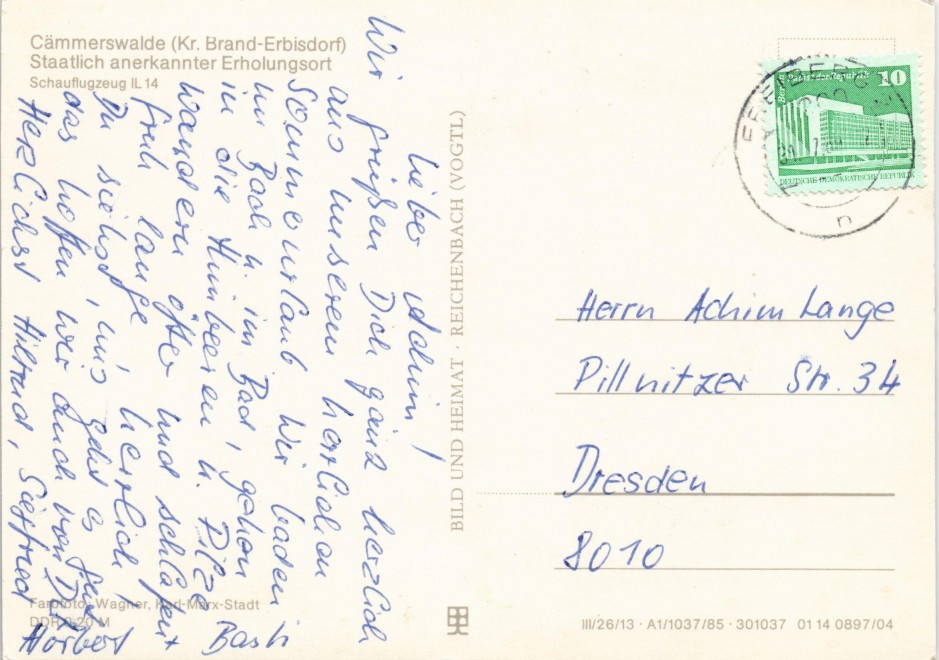 Cämmerswalde (Kr. Brand-Erbisdorf)
Staatlich anerkannter Erholungsort
Schauflugzeug IL 14
Lieber Achim!
Wir grüßen Dich ganz herzlich
aus unserem herrlichen
Sommerurlaub. Wir baden
im Bach u. im Bad, gehen
in die Himbeeren u. Pilze
wandern öfter und schlafen
früh lange herrlich!
Du siehst, uns geht es gut
das hoffen wir auch von Dir
Herzlichst Hiltrud, Siegfried
Norbert Basti
Farbfoto: Wagner, Karl-Marx-Stadt
DDR 0,20 M
BILD UND HEIMAT · REICHENBACH (VOGTL)
Berlin Palast der Republik 10
DEUTSCHE DEMOKRATISCHE REPUBLIK
FREIBERG
n
Herrn Achim Lange
Pillnitzer Str. 34
Dresden
8010
III/26/13 · A1/1037/85 · 301037 01 14 0897/04